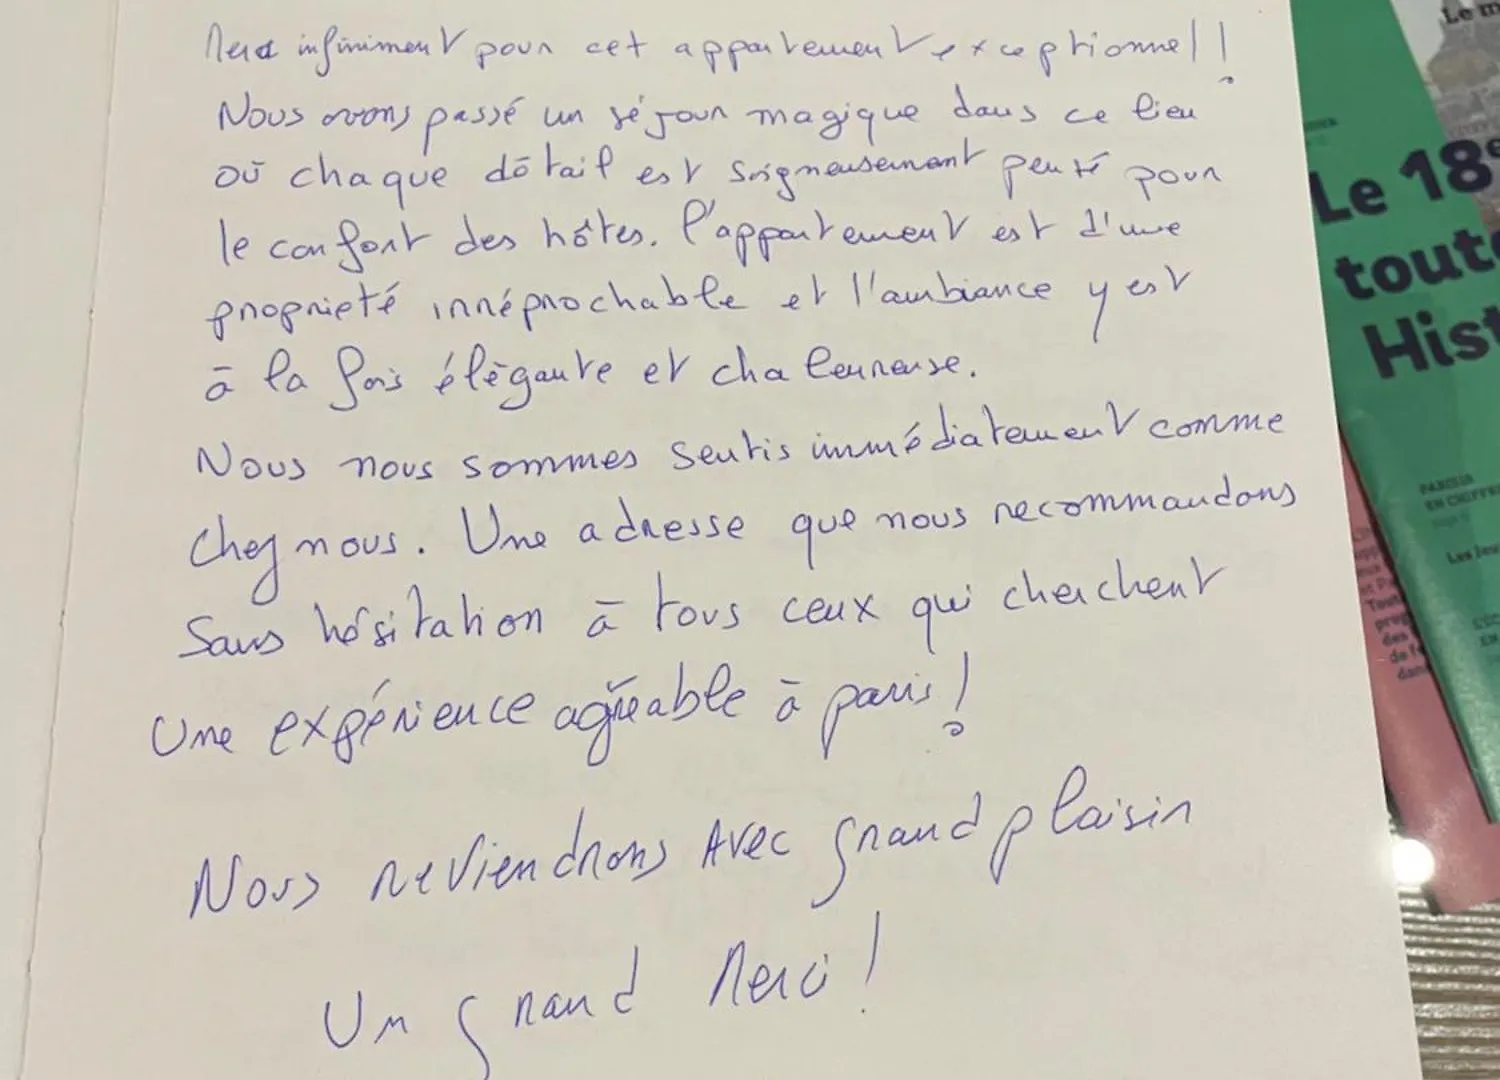 Merci infiniment pour cet appartement exceptionnel !
Nous avons passé un séjour magique dans ce lieu
où chaque détail est soigneusement pensé pour
le confort des hôtes. l'appartement est d'une
propriété irréprochable et l'ambiance y est
à la fois élégante et chaleureuse.
Nous nous sommes sentis immédiatement comme
chez nous. Une adresse que nous recommandons
Sans hésitation à tous ceux qui cherchent
Une expérience agréable à paris !
Nous reviendrons Avec grand plaisir
Un grand Merci !
Le 18e
toute
Hist
PARISIEN
EN CHIFFRES
Les Jeu